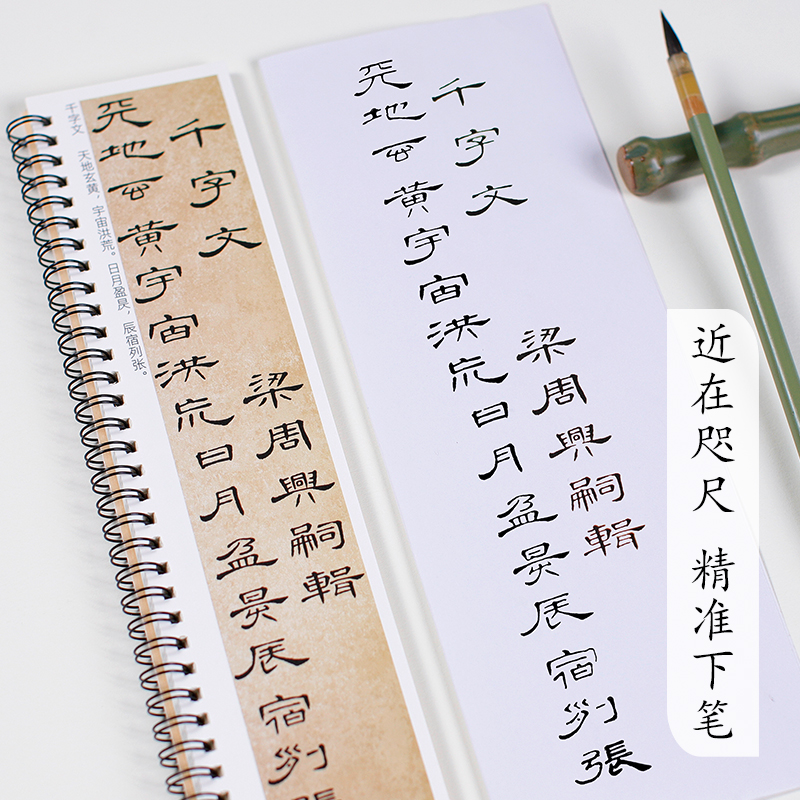 千字文 梁周興嗣輯
天地玄黃宇宙洪荒日月盈昃辰宿列張
千字文 天地玄黄，宇宙洪荒。日月盈昃，辰宿列张。
千字文 梁周興嗣輯
天地玄黃宇宙洪荒日月盈昃辰宿列張
近在咫尺 精准下笔